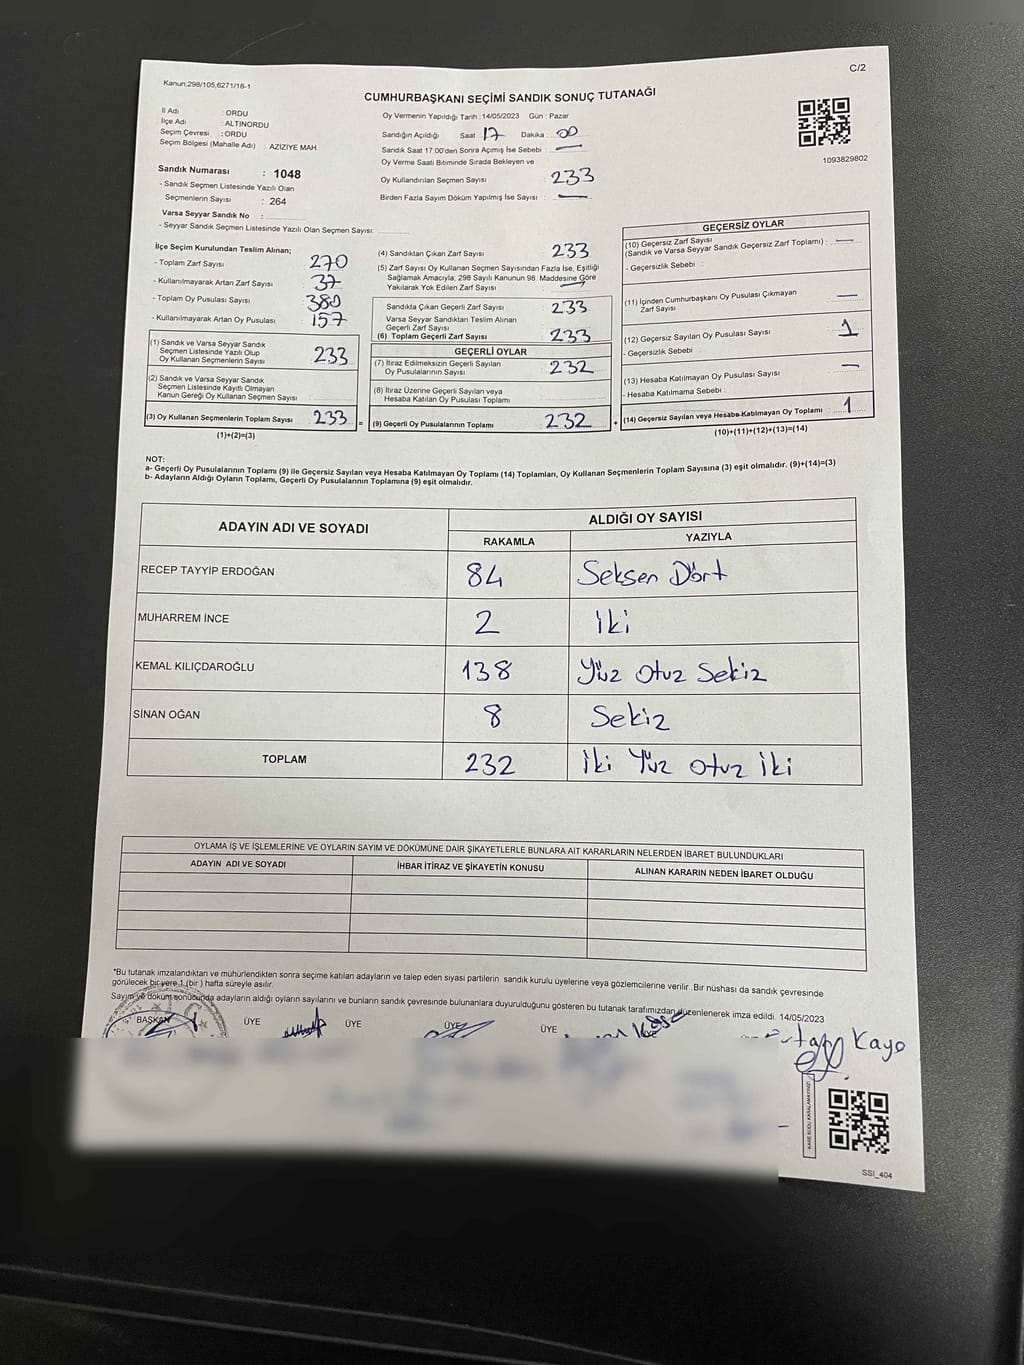 C/2
Kanun:298/105,6271/18-1
CUMHURBAŞKANI SEÇİMİ SANDIK SONUÇ TUTANAĞI
İl Adı : ORDU
İlçe Adı : ALTINORDU
Seçim Çevresi : ORDU
Seçim Bölgesi (Mahalle Adı) : AZİZİYE MAH.
Oy Vermenin Yapıldığı Tarih : 14/05/2023 Gün : Pazar
Sandığın Açıldığı Saat : 17 Dakika : 00
Sandık Saat 17:00'den Sonra Açımış İse Sebebi : —
Oy Verme Saati Bitiminde Sırada Bekleyen ve
Oy Kullandırılan Seçmen Sayısı 233
Birden Fazla Sayım Döküm Yapılmış İse Sayısı : —
1093829802
Sandık Numarası : 1048
- Sandık Seçmen Listesinde Yazılı Olan
Seçmenlerin Sayısı : 264
Varsa Seyyar Sandık No :
- Seyyar Sandık Seçmen Listesinde Yazılı Olan Seçmen Sayısı:
İlçe Seçim Kurulundan Teslim Alınan;
- Toplam Zarf Sayısı 270
- Kullanılmayarak Artan Zarf Sayısı 37
- Toplam Oy Pusulası Sayısı 380
- Kullanılmayarak Artan Oy Pusulası 157
(1) Sandık ve Varsa Seyyar Sandık
Seçmen Listesinde Yazılı Olup
Oy Kullanan Seçmenlerin Sayısı 233
(2) Sandık ve Varsa Seyyar Sandık
Seçmen Listesinde Kayıtlı Olmayan
Kanun Gereği Oy Kullanan Seçmen Sayısı
(3) Oy Kullanan Seçmenlerin Toplam Sayısı 233 =
(1)+(2)=(3)
(4) Sandıktan Çıkan Zarf Sayısı 233
(5) Zarf Sayısı Oy Kullanan Seçmen Sayısından Fazla İse, Eşitliği
Sağlamak Amacıyla, 298 Sayılı Kanunun 98. Maddesine Göre
Yakılarak Yok Edilen Zarf Sayısı —
Sandıkta Çıkan Geçerli Zarf Sayısı 233
Varsa Seyyar Sandıktan Teslim Alınan
Geçerli Zarf Sayısı
(6) Toplam Geçerli Zarf Sayısı 233
GEÇERLİ OYLAR
(7) İtiraz Edilmeksizin Geçerli Sayılan
Oy Pusulalarının Sayısı 232
(8) İtiraz Üzerine Geçerli Sayılan veya
Hesaba Katılan Oy Pusulası Toplamı
(9) Geçerli Oy Pusulalarının Toplamı 232 +
GEÇERSİZ OYLAR
(10) Geçersiz Zarf Sayısı
(Sandık ve Varsa Seyyar Sandık Geçersiz Zarf Toplamı) : —
- Geçersizlik Sebebi :
(11) İçinden Cumhurbaşkanı Oy Pusulası Çıkmayan
Zarf Sayısı —
(12) Geçersiz Sayılan Oy Pusulası Sayısı 1
- Geçersizlik Sebebi
(13) Hesaba Katılmayan Oy Pusulası Sayısı —
- Hesaba Katılmama Sebebi :
(14) Geçersiz Sayılan veya Hesaba Katılmayan Oy Toplamı 1
(10)+(11)+(12)+(13)=(14)
NOT:
a- Geçerli Oy Pusulalarının Toplamı (9) ile Geçersiz Sayılan veya Hesaba Katılmayan Oy Toplamı (14) Toplamları, Oy Kullanan Seçmenlerin Toplam Sayısına (3) eşit olmalıdır. (9)+(14)=(3)
b- Adayların Aldığı Oyların Toplamı, Geçerli Oy Pusulalarının Toplamına (9) eşit olmalıdır.
ADAYIN ADI VE SOYADI ALDIĞI OY SAYISI
RAKAMLA YAZIYLA
RECEP TAYYİP ERDOĞAN 84 Seksen Dört
MUHARREM İNCE 2 İki
KEMAL KILIÇDAROĞLU 138 Yüz Otuz Sekiz
SİNAN OĞAN 8 Sekiz
TOPLAM 232 İki Yüz Otuz İki
OYLAMA İŞ VE İŞLEMLERİNE VE OYLARIN SAYIM VE DÖKÜMÜNE DAİR ŞİKAYETLERLE BUNLARA AİT KARARLARIN NELERDEN İBARET BULUNDUKLARI
ADAYIN ADI VE SOYADI İHBAR İTİRAZ VE ŞİKAYETİN KONUSU ALINAN KARARIN NEDEN İBARET OLDUĞU
*Bu tutanak imzalandıktan ve mühürlendikten sonra seçime katılan adayların ve talep eden siyasi partilerin sandık kurulu üyelerine veya gözlemcilerine verilir .Bir nüshası da sandık çevresinde
görülecek bir yere 1 (bir ) hafta süreyle asılır.
Sayım ve döküm sonucunda adayların aldığı oyların sayılarını ve bunların sandık çevresinde bulunanlara duyurulduğunu gösteren bu tutanak tarafımızdan düzenlenerek imza edildi. 14/05/2023
BAŞKAN ÜYE ÜYE ÜYE ÜYE ÜYE
Kaya
KARE KODU KARALAMAYINIZ!
SSI_404